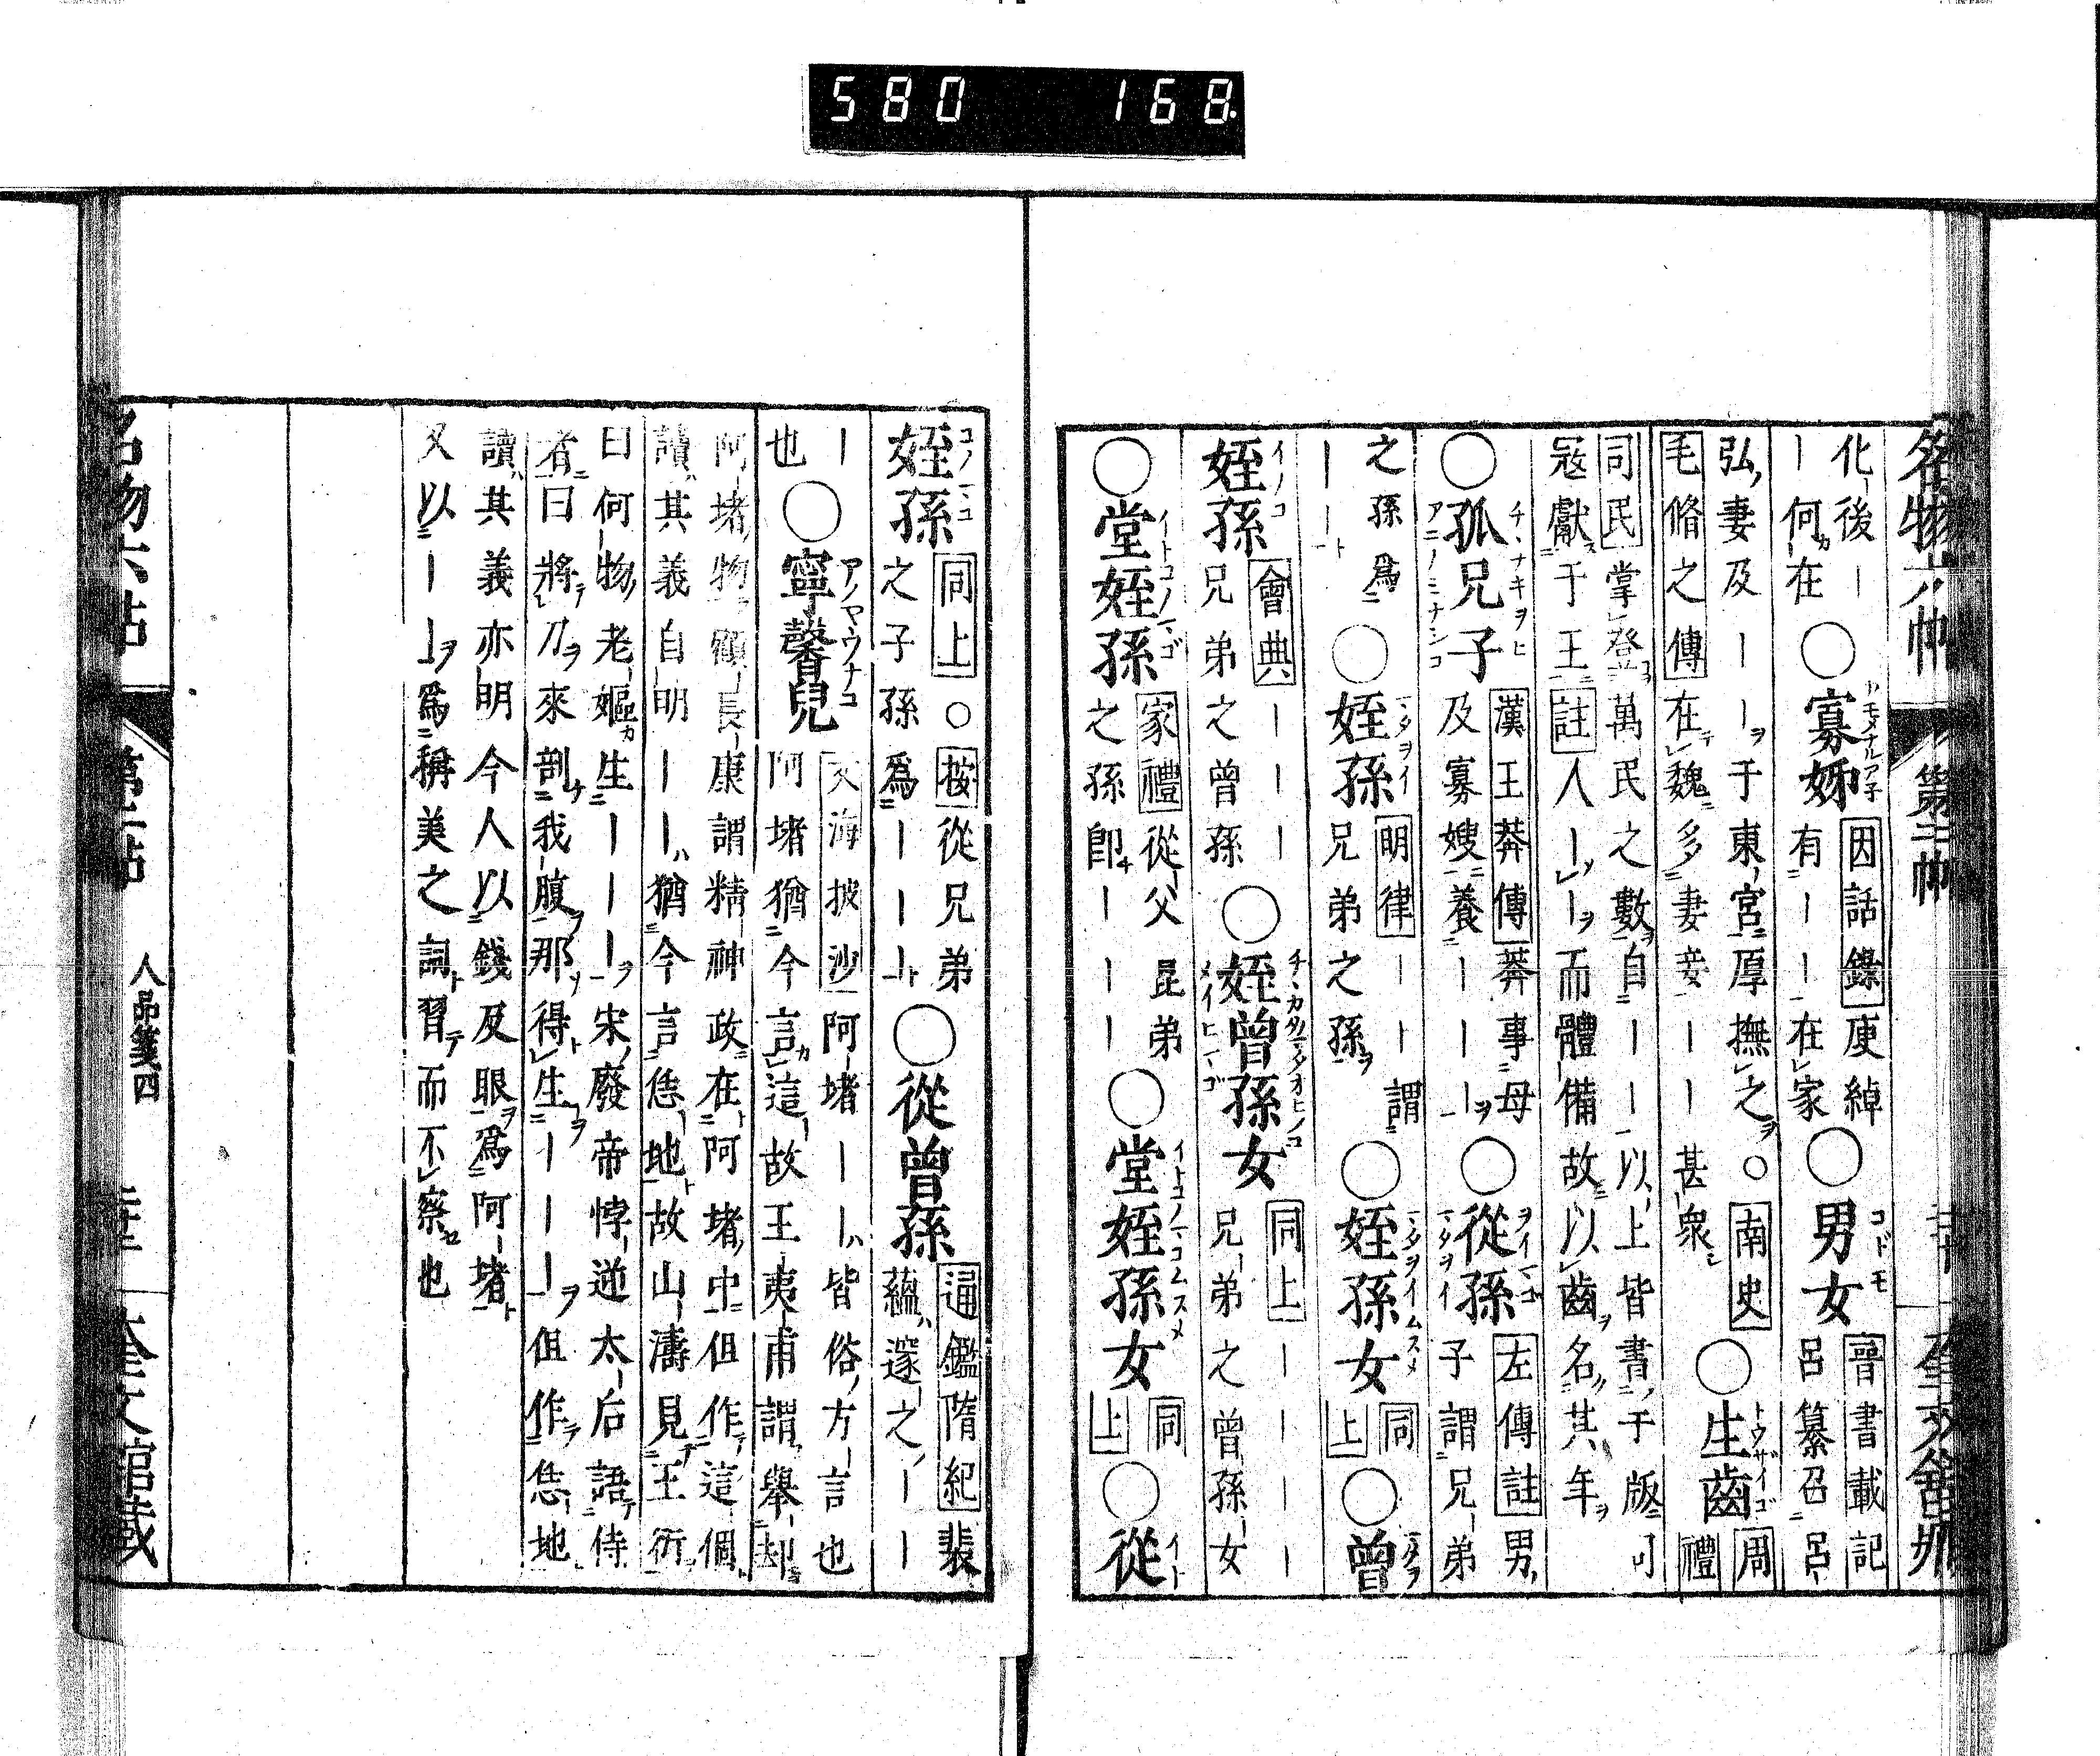 580 168
名物六帖 第二帖
化後｜
｜何在○寡姊 因話錄 庾綽
有｜｜在家○男女 晉書載記
呂纂召呂
弘妻及｜｜于東宮厚撫之○南史
毛脩之傳 在魏多妻妾｜｜甚衆○生齒 周禮
司民掌登萬民之數自｜｜以上皆書于版司
寇獻于王 註 人｜｜而體備故以齒名其年
○孤兄子 漢王莽傳 莽事母
及寡嫂養｜｜｜○從孫 左傳註 男
子謂兄弟
之孫爲
｜｜○姪孫 明律｜｜謂
兄弟之孫○姪孫女 同上○曾
姪孫 會典｜｜｜
兄弟之曾孫○姪曾孫女 同上｜｜｜｜
兄弟之曾孫女
○堂姪孫 家禮 從父昆弟
之孫卽｜｜｜○堂姪孫女 同上○從
姪孫 同上○按從兄弟
之子孫爲｜｜｜○從曾孫 通鑑隋紀 裴
蘊邃之｜｜
｜
也○寧馨兒 文海披沙 阿堵｜｜皆俗方言也
阿堵猶今言這故王夷甫謂舉却
阿堵物顧長康謂精神政在阿堵中但作這個
讀其義自明｜｜猶今言恁地故山濤見王衍
曰何物老嫗生｜｜｜宋廢帝悖逆太后語侍
者曰將刀來剖我腹那得生｜｜｜但作恁地
讀其義亦明今人以錢及眼爲阿堵
又以｜｜爲稱美之詞習而不察也
名物六帖 第二帖 人品箋四 奎文館藏